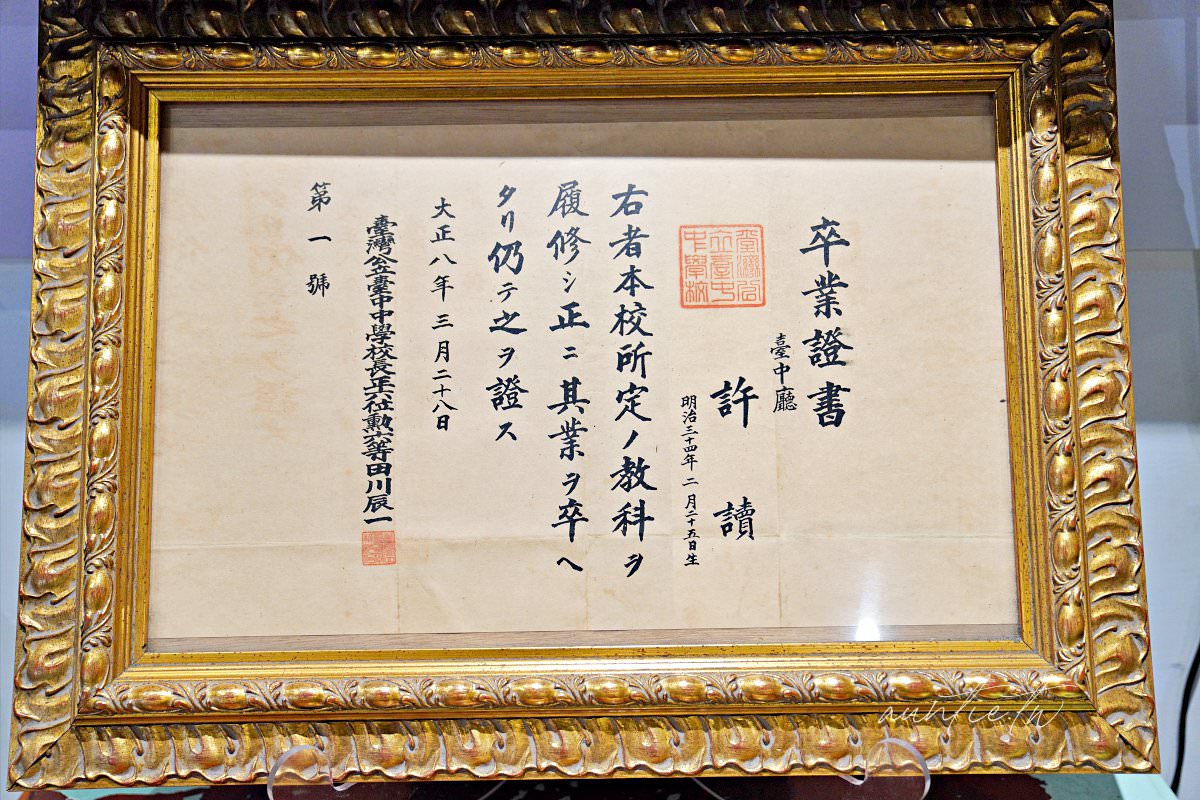 卒業證書
臺中廳
許 讀
明治三十四年二月二十五日生
臺灣公立臺中中學校
右者本校所定ノ教科ヲ
履修シ正ニ其業ヲ卒ヘ
タリ仍テ之ヲ證ス
大正八年三月二十八日
臺灣公立臺中中學校長正六位勲六等田川辰一
第一號
auntie.tw